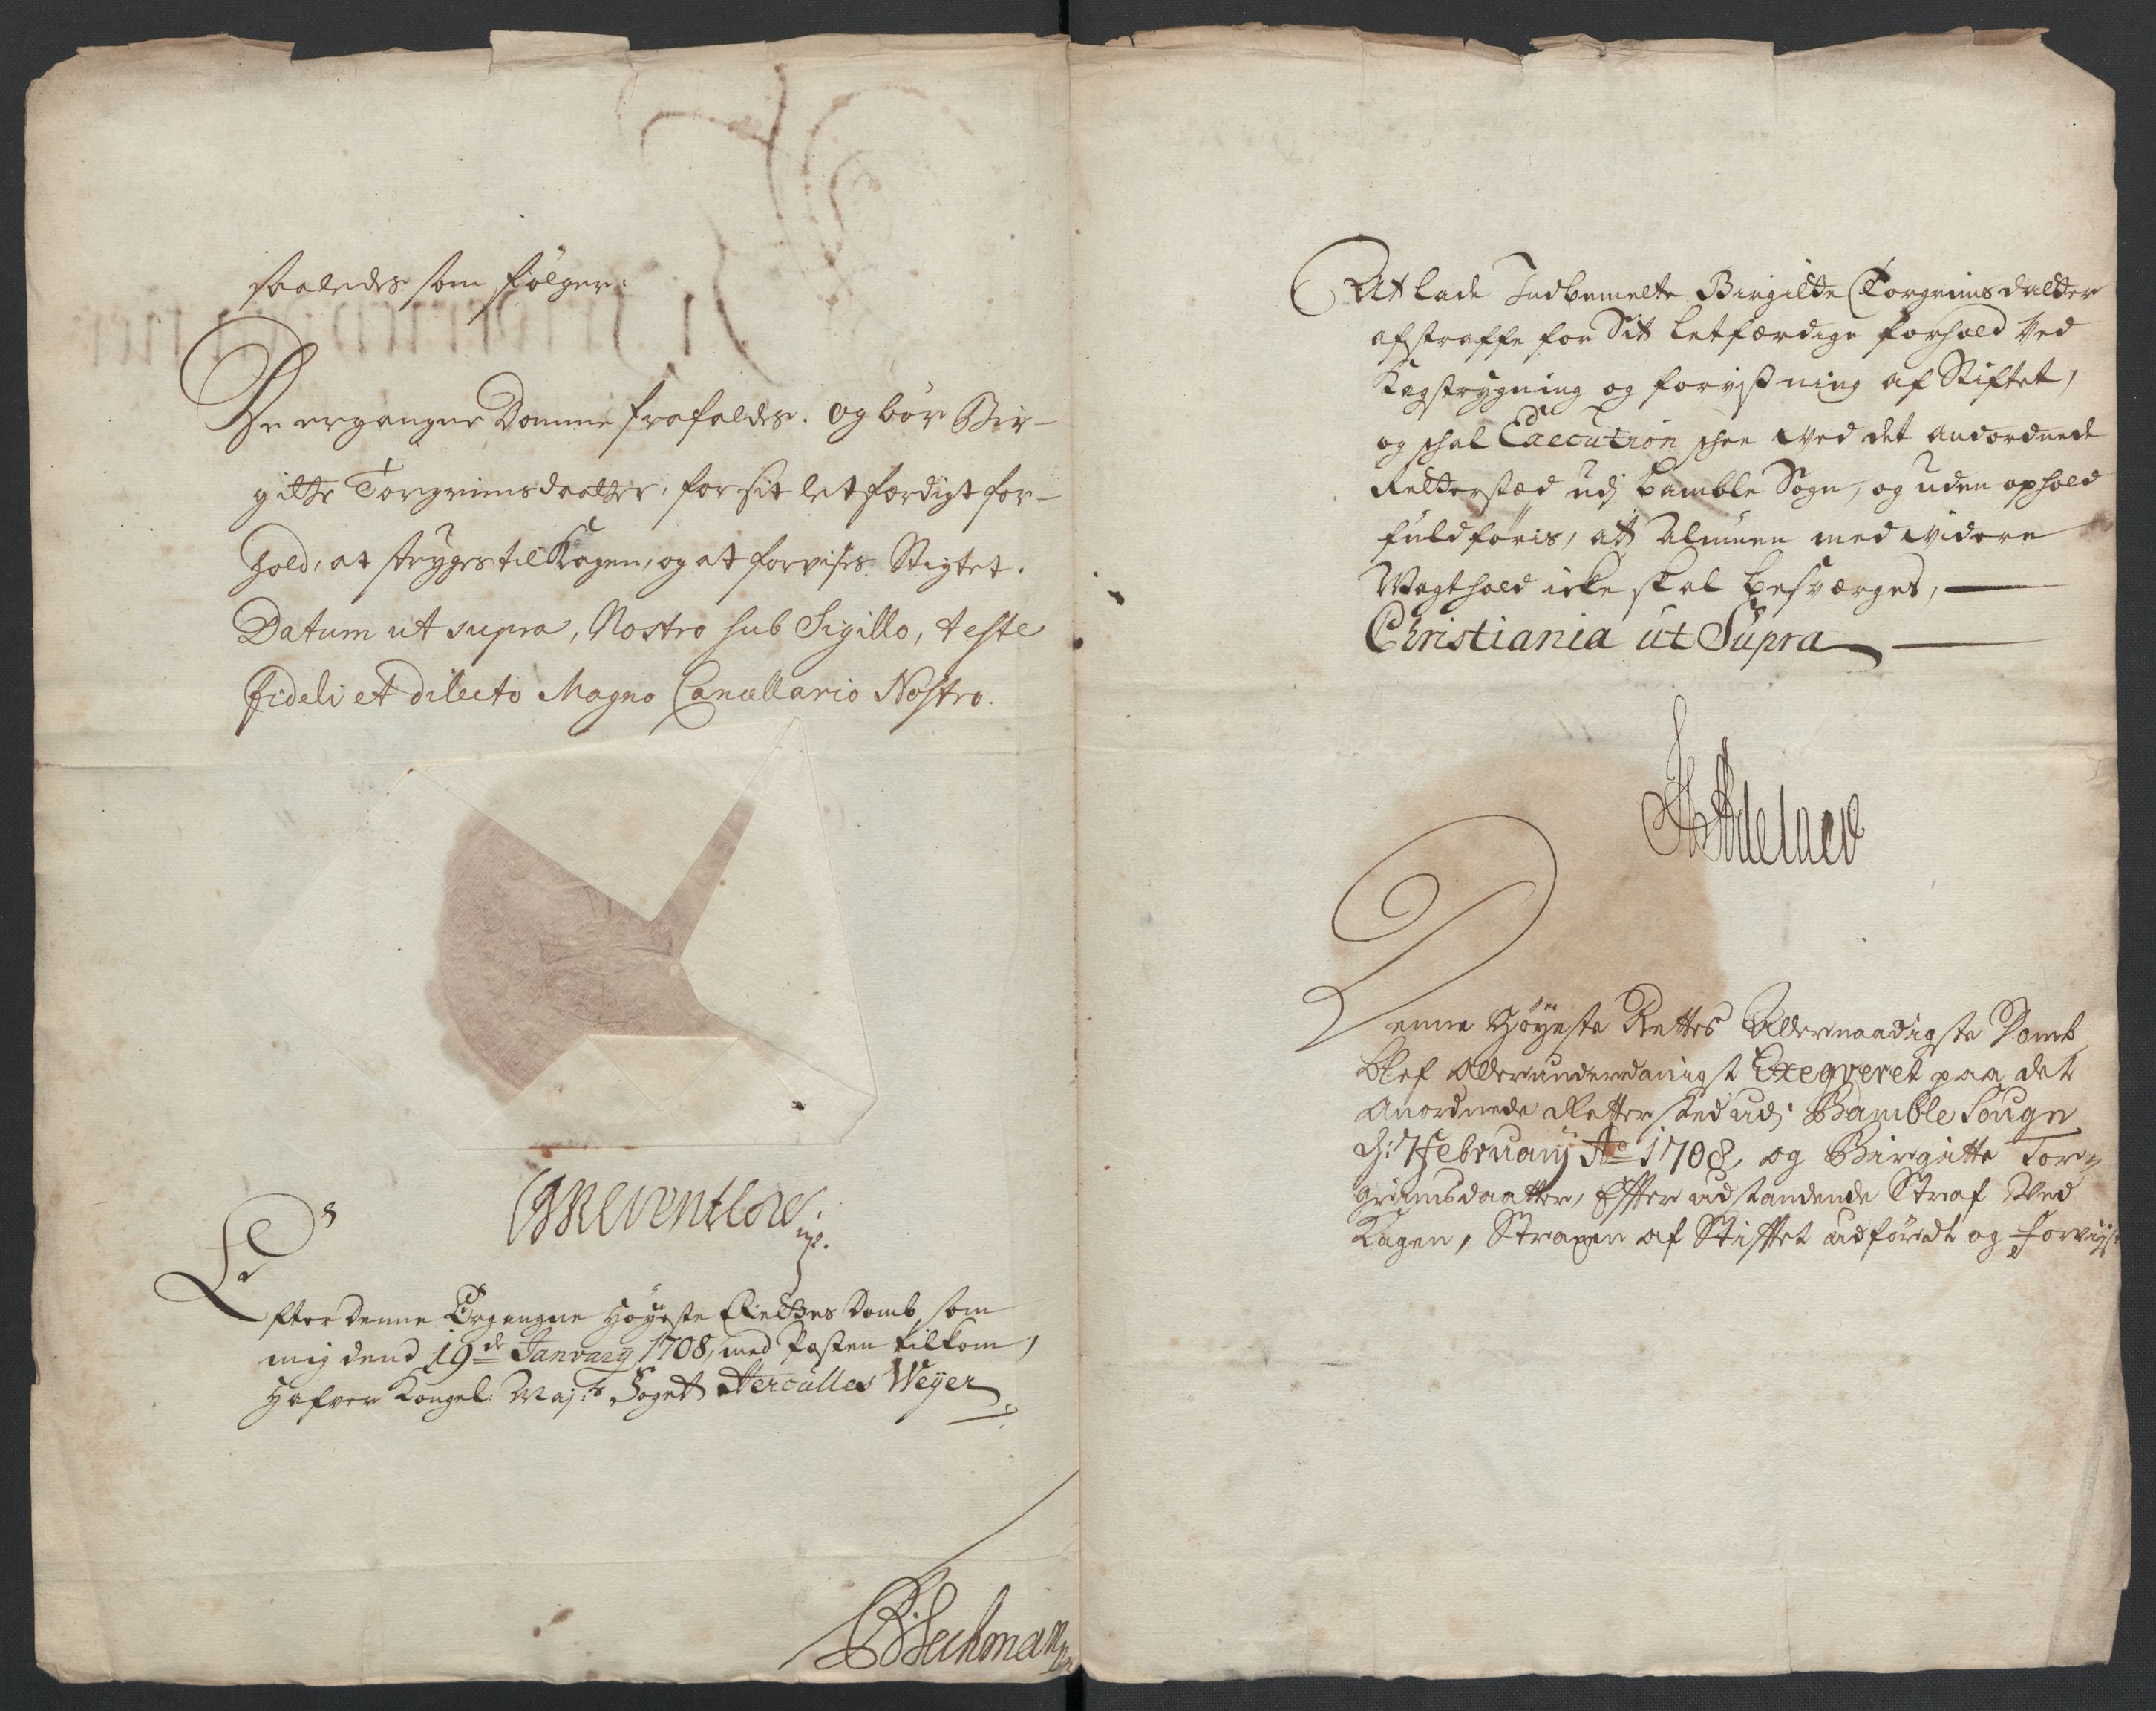 saaledes som følger:
De ergangne Domme frafaldes. og bør Bir-
gitte Torgrimsdaatter, for sit letfærdigt for-
hold, at stryges til Kagen, og at forvises Stigtet.
Datum ut supra, Nostro sub Sigillo, teste
fideli et dilecto Magno Cancellario Nostro.
CReventlow
Efter denne Ergangne Høyeste Rettes Domb, som
mig dend 19de January 1708, med Posten tilkom,
Hafver Kongel: Maj:ts Foget Herculles Weyer
At lade Indbemelte Birgitte Torgrimsdatter
afstraffe for Sit letfærdige forhold ved
Kagstrygning og forvisning af Stiftet,
og schal Execution schee ved det anordnede
Retterstæd udj Bamble Sogn, og uden ophold
fuldføris, att Almuen med vidare
Wagthold icke skal besværges,
Christiania ut Supra
Adelaer
Denne Høyeste Rettes Allernaadigste Domb
blef Allerunderdanigst Exeqveret paa det
Anordnede Rettersted udj Bamble Sougn
d: 7 February Ao 1708, og Birgitte Tor-
grimsdaatter, Effter udstandende Straf Ved
Kagen, Straxen af Stifftet udførdt og Forviist